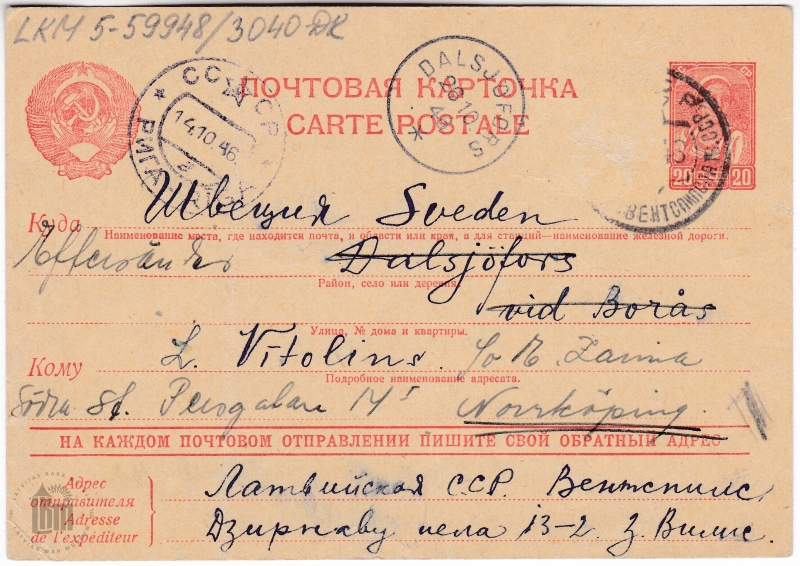 LKM 5-59948/3040-DK
ПОЧТОВАЯ КАРТОЧКА
CARTE POSTALE
СССР
РИГА
14.10.46
DALSJÖFORS
20
20
ВЕНТСПИЛС
Куда
Швеция Sweden
Наименование места, где находится почта, и области или края, а для станций—наименование железной дороги.
Eftersändes
Dalsjöfors
Район, село или деревня.
vid Borås
Улица, № дома и квартиры.
Кому
L. Vītoliņš.
Подробное наименование адресата.
Södra St. 14
Norrköping.
НА КАЖДОМ ПОЧТОВОМ ОТПРАВЛЕНИИ ПИШИТЕ СВОЙ ОБРАТНЫЙ АДРЕС
Адрес
отправителя
Adresse
de l'expéditeur
Латвийская ССР. Вентспилс,
Дзирнаву иела 13-2. З. Вилис.